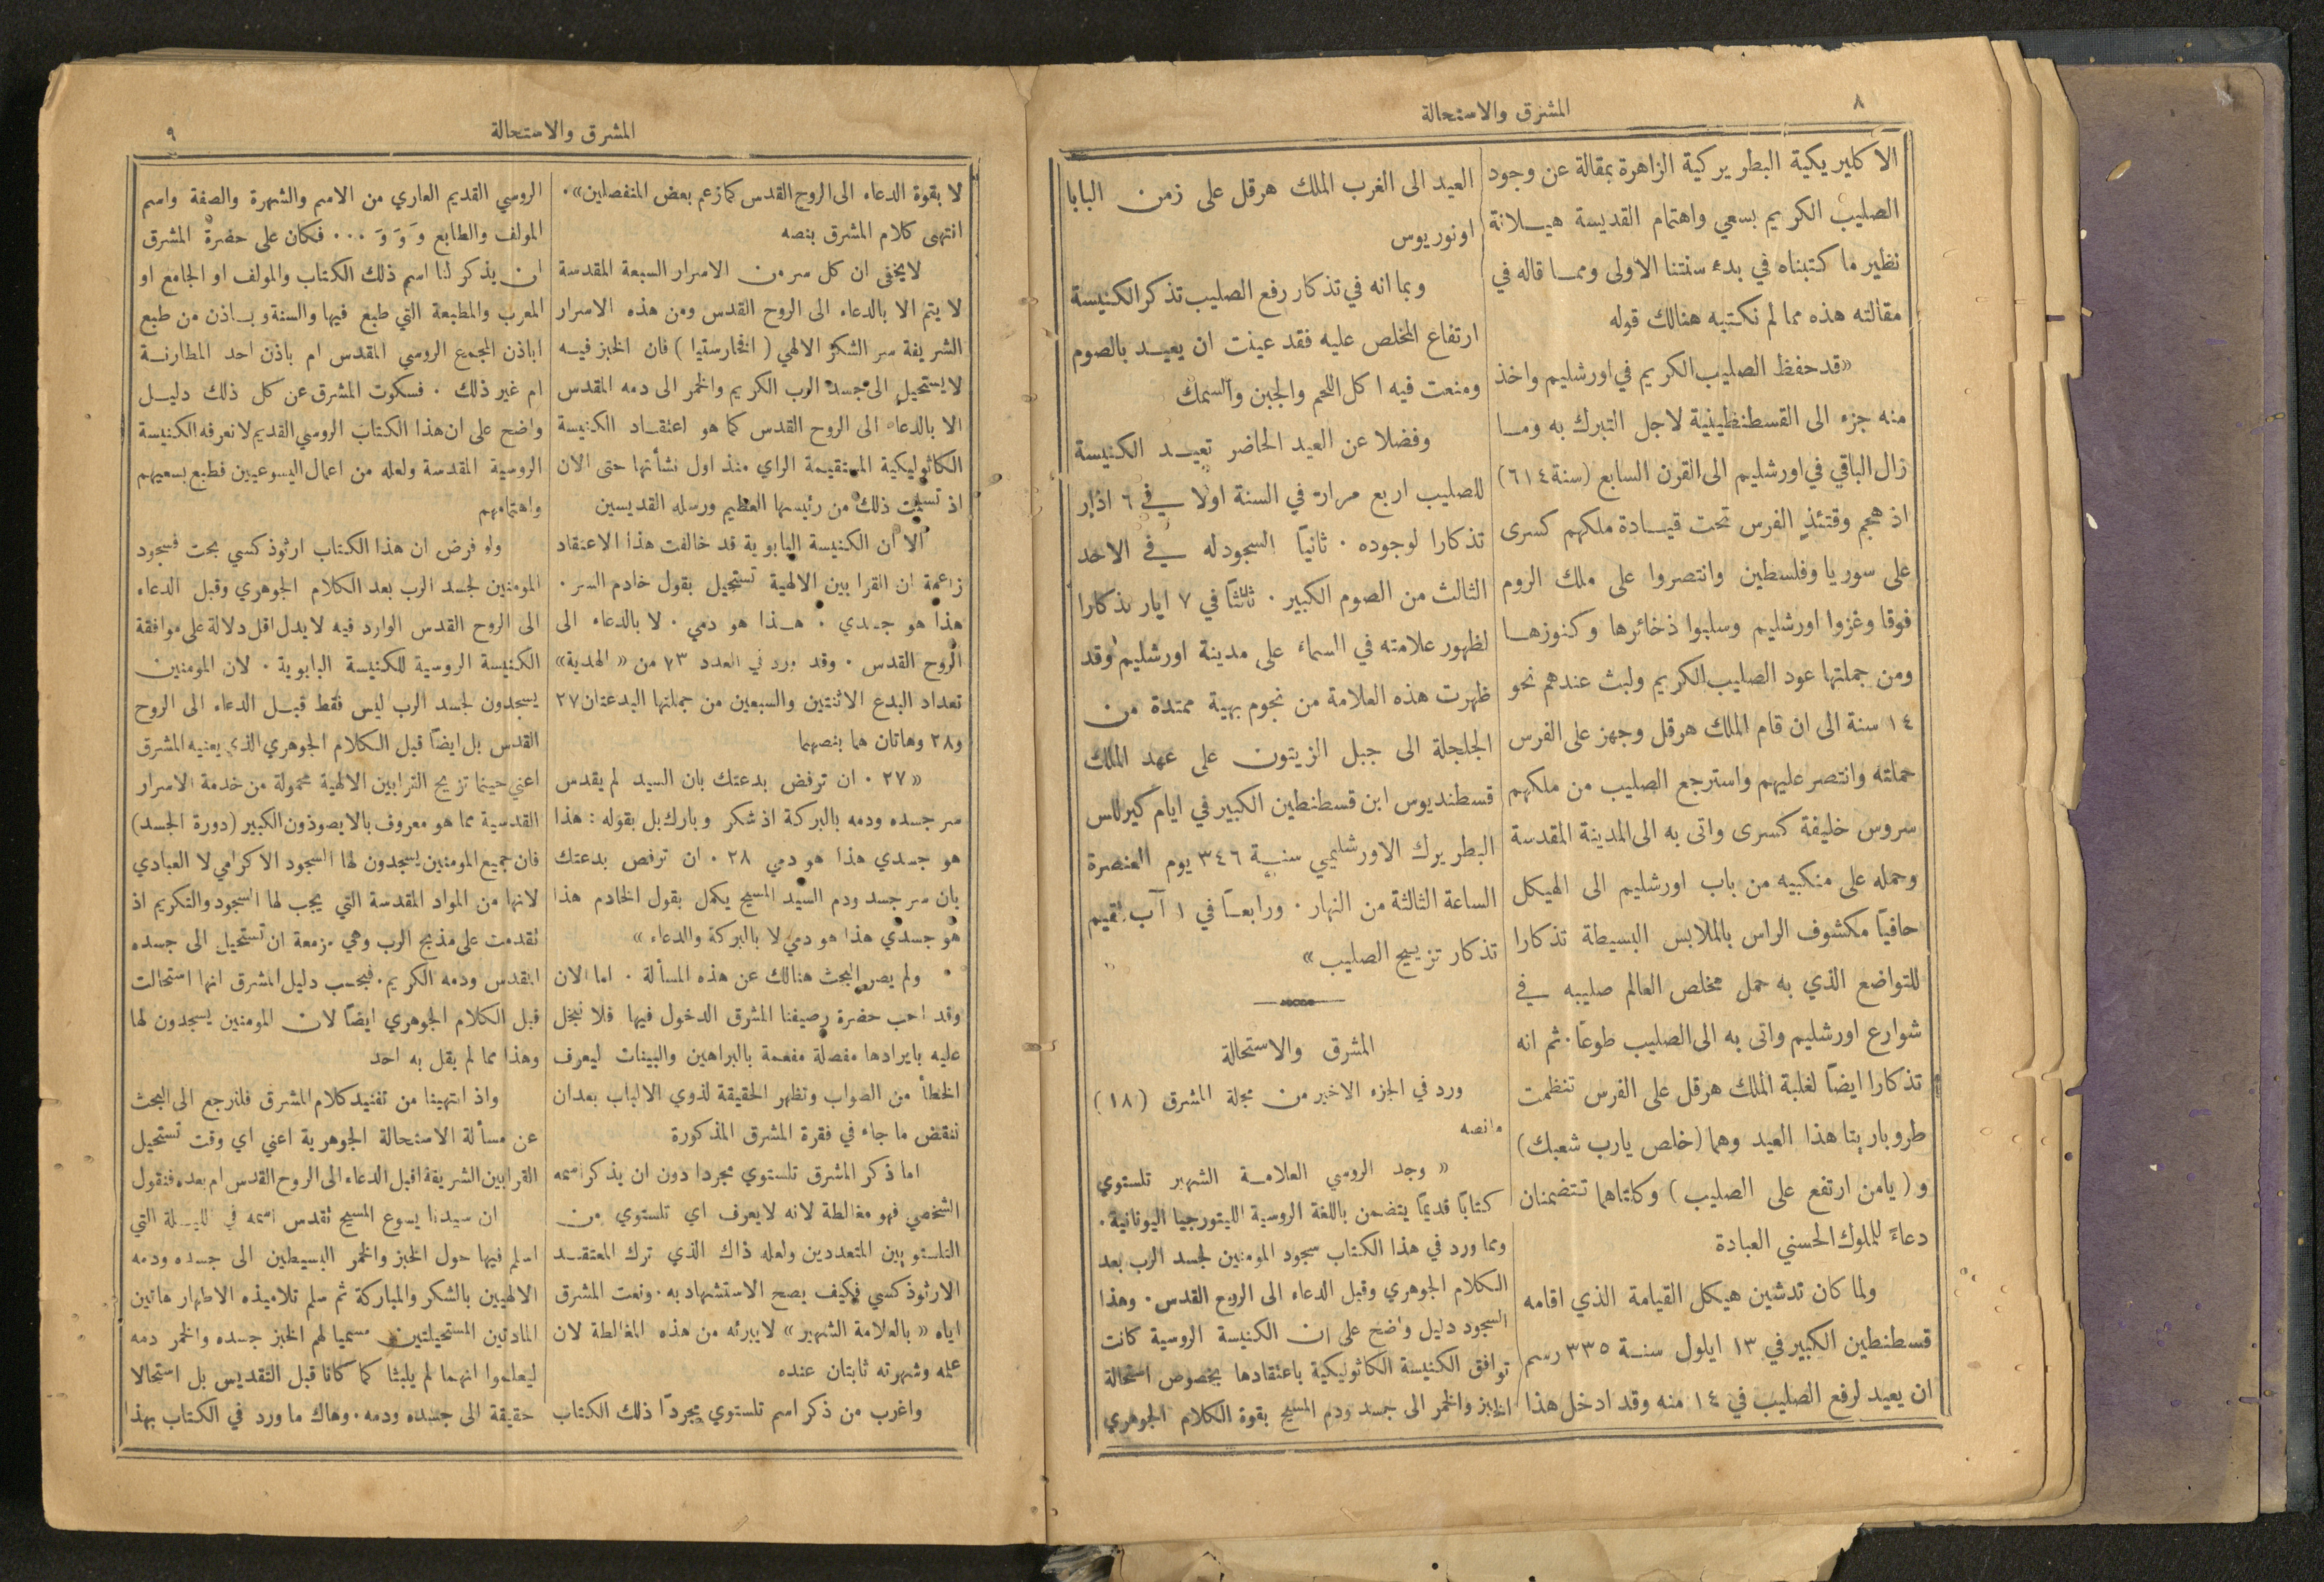 ٨
المشرق والاستحالة
الاكليريكية البطريركية الزاهرة بمقالة عن وجود
الصليب الكريم بسعي واهتمام القديسة هيلانة
نظير ما كتبناه في بدء سنتنا الاولى ومما قاله في
مقالته هذه مما لم نكتبه هنالك قوله
«قد حفظ الصليب الكريم في اورشليم واخذ
منه جزء الى القسطنطينية لاجل التبرك به وما
زال الباقي في اورشليم الى القرن السابع (سنة ٦١٤)
اذ هجم وقتئذٍ الفرس تحت قيادة ملكهم كسرى
على سوريا وفلسطين وانتصروا على ملك الروم
فوقا وغزوا اورشليم وسلبوا ذخائرها وكنوزها
ومن جملتها عود الصليب الكريم ولبث عندهم نحو
١٤ سنة الى ان قام الملك هرقل وجهز على الفرس
حملته وانتصر عليهم واسترجع الصليب من ملكهم
سروس خليفة كسرى واتى به الى المدينة المقدسة
وحمله على منكبيه من باب اورشليم الى الهيكل
حافيًا مكشوف الراس بالملابس البسيطة تذكارا
للتواضع الذي به حمل مخلص العالم صليبه في
شوارع اورشليم واتى به الى الصليب طوعًا. ثم انه
تذكارا ايضًا لغلبة الملك هرقل على الفرس تنظمت
طروباريتا هذا العيد وهما (خلص يارب شعبك)
و (يامن ارتفع على الصليب) وكلتاهما تتضمنان
دعاءً للملوك الحسني العبادة
ولما كان تدشين هيكل القيامة الذي اقامه
قسطنطين الكبير في ١٣ ايلول سنة ٣٣٥ رسم
ان يعيد لرفع الصليب في ١٤ منه وقد ادخل هذا
العيد الى الغرب الملك هرقل على زمن البابا
اونوريوس
وبما انه في تذكار رفع الصليب تذكر الكنيسة
ارتفاع المخلص عليه فقد عينت ان يعيد بالصوم
ومنعت فيه اكل اللحم والجبن والسمك
وفضلا عن العيد الحاضر تعيد الكنيسة
للصليب اربع مرات في السنة اولا في ٦ اذار
تذكارا لوجوده . ثانيًا السجود له في الاحد
الثالث من الصوم الكبير . ثالثًا في ٧ ايار تذكارا
لظهور علامته في السماء على مدينة اورشليم وقد
ظهرت هذه العلامة من نجوم بهية ممتدة من
الجلجلة الى جبل الزيتون على عهد الملك
قسطنديوس ابن قسطنطين الكبير في ايام كيرللس
البطريرك الاورشليمي سنة ٣٤٦ يوم العنصرة
الساعة الثالثة من النهار . ورابعًا في ١ آب نقيم
تذكار تزييح الصليب»
المشرق والاستحالة
ورد في الجزء الاخير من مجلة المشرق (١٨)
مانصه
« وجد الروسي العلامة الشهير تلستوي
كتابًا قديمًا يتضمن باللغة الروسية الليتورجيا اليونانية.
ومما ورد في هذا الكتاب سجود المومنين لجسد الرب بعد
الكلام الجوهري وقبل الدعاء الى الروح القدس . وهذا
السجود دليل واضح على ان الكنيسة الروسية كانت
توافق الكنيسة الكاثوليكية باعتقادها بخصوص استحالة
الخبز والخمر الى جسد ودم المسيح بقوة الكلام الجوهري
المشرق والاستحالة
٩
لا بقوة الدعاء الى الروح القدس كما زعم بعض المنفصلين».
انتهى كلام المشرق بنصه
لايخفى ان كل سر من الاسرار السبعة المقدسة
لا يتم الا بالدعاء الى الروح القدس ومن هذه الاسرار
الشريفة سر الشكر الالهي (افخارستيا) فان الخبز فيه
لايستحيل الى جسد الرب الكريم والخمر الى دمه المقدس
الا بالدعاء الى الروح القدس كما هو اعتقاد الكنيسة
الكاثوليكية المستقيمة الراي منذ اول نشأتها حتى الان
اذ تسلمت ذلك من رئيسها العظيم ورسله القديسين
الا ان الكنيسة البابوية قد خالفت هذا الاعتقاد
زاعمة ان القرابين الالهية تستحيل بقول خادم السر .
هذا هو جسدي . هذا هو دمي . لا بالدعاء الى
الروح القدس . وقد ورد في العدد ٧٣ من «الهدية»
تعداد البدع الاثنتين والسبعين من جملتها البدعتان ٢٧
و٢٨ وهاتان هما بنصهما
« ٢٧ . ان ترفض بدعتك بان السيد لم يقدس
سر جسده ودمه بالبركة اذ شكر وبارك بل بقوله : هذا
هو جسدي هذا هو دمي ٢٨ . ان ترفض بدعتك
بان سر جسد ودم السيد المسيح يكمل بقول الخادم هذا
هو جسدي هذا هو دمي لا بالبركة والدعاء »
ولم يصر البحث هنالك عن هذه المسألة . اما الان
وقد احب حضرة رصيفنا المشرق الدخول فيها فلا نبخل
عليه بايرادها مفصلة مفعمة بالبراهين والبينات ليعرف
الخطأ من الصواب وتظهر الحقيقة لذوي الالباب بعد ان
ننقض ما جاء في فقرة المشرق المذكورة
اما ذكر المشرق تلستوي مجردا دون ان يذكر اسمه
الشخصي فهو مغالطة لانه لايعرف اي تلستوي من
التلستويين المتعددين ولعله ذاك الذي ترك المعتقد
الارثوذكسي فكيف يصح الاستشهاد به . ونعت المشرق
اياه « بالعلامة الشهير » لايبرئه من هذه المغالطة لان
علمه وشهرته ثابتان عنده
واغرب من ذكر اسم تلستوي مجردًا ذلك الكتاب
الروسي القديم العاري من الاسم والشهرة والصفة واسم
المولف والطابع وَ وَ وَ ... فكان على حضرة المشرق
ان يذكر لنا اسم ذلك الكتاب والمولف او الجامع او
المعرب والمطبعة التي طبع فيها والسنة وباذن من طبع
اباذن المجمع الروسي المقدس ام باذن احد المطارنة
ام غير ذلك . فسكوت المشرق عن كل ذلك دليل
واضح على ان هذا الكتاب الروسي القديم لا تعرفه الكنيسة
الروسية المقدسة ولعله من اعمال اليسوعيين فطبع بسعيهم
واهتمامهم
ولو فرض ان هذا الكتاب ارثوذكسي بحت فسجود
المومنين لجسد الرب بعد الكلام الجوهري وقبل الدعاء
الى الروح القدس الوارد فيه لا يدل اقل دلالة على موافقة
الكنيسة الروسية للكنيسة البابوية . لان المومنين
يسجدون لجسد الرب ليس فقط قبل الدعاء الى الروح
القدس بل ايضًا قبل الكلام الجوهري الذي يعنيه المشرق
اعني حينما تزيح القرابين الالهية محمولة من خدمة الاسرار
القدسية مما هو معروف بالايصوذون الكبير (دورة الجسد)
فان جميع المومنين يسجدون لها السجود الاكرامي لا العبادي
لانها من المواد المقدسة التي يجب لها السجود والتكريم اذ
تقدمت على مذبح الرب وهي مزمعة ان تستحيل الى جسده
المقدس ودمه الكريم . فبحسب دليل المشرق انها استحالت
قبل الكلام الجوهري ايضًا لان المومنين يسجدون لها
وهذا مما لم يقل به احد
واذ انتهينا من تفنيد كلام المشرق فلنرجع الى البحث
عن مسألة الاستحالة الجوهرية اعني اي وقت تستحيل
القرابين الشريفة اقبل الدعاء الى الروح القدس ام بعده فنقول
ان سيدنا يسوع المسيح تقدس اسمه في الليلة التي
اسلم فيها حول الخبز والخمر البسيطين الى جسده ودمه
الالهيين بالشكر والمباركة ثم سلم تلاميذه الاطهار هاتين
المادتين المستحيلتين مسميا لهم الخبز جسده والخمر دمه
ليعلموا انهما لم يلبثا كما كانا قبل التقديس بل استحالا
حقيقة الى جسده ودمه . وهاك ما ورد في الكتاب بهذا